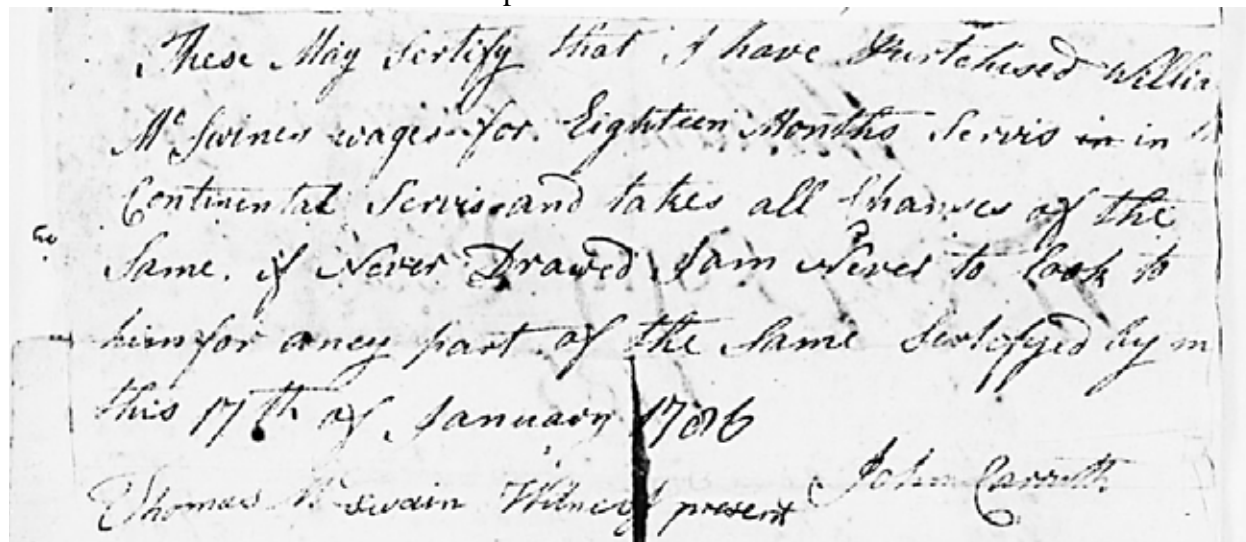 These May Sertify that I have Purtchised Willia
Mc Swines wages for Eighteen Months Servis in in
Continental Servis and takes all Chanses of the
Same. if Never Drawed I am Never to look to
him for aney part of the Same Sertefyed by m
this 17th of January 1786
John Carruth
Thomas Mc Swain Witness present